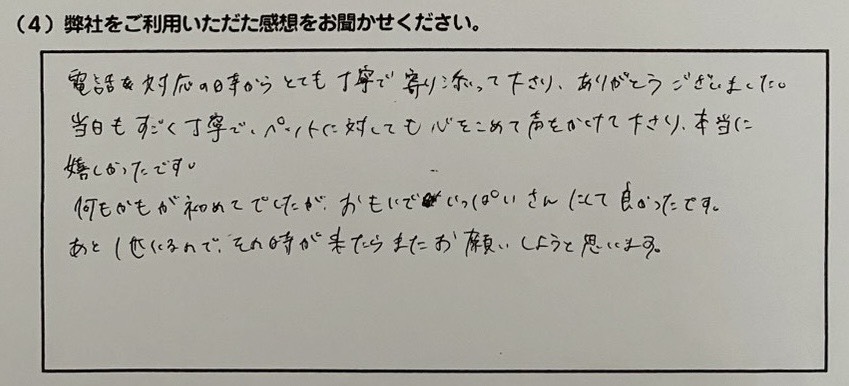 (4) 弊社をご利用いただた感想をお聞かせください。
電話対応の時からとても丁寧で寄り添って下さり、ありがとうございました。
当日もすごく丁寧で、ペットに対しても心をこめて声をかけて下さり、本当に
嬉しかったです。
何もかもが初めてでしたが、おもいでいっぱいさんにして良かったです。
あと1匹いるので、その時が来たらまたお願いしようと思います。